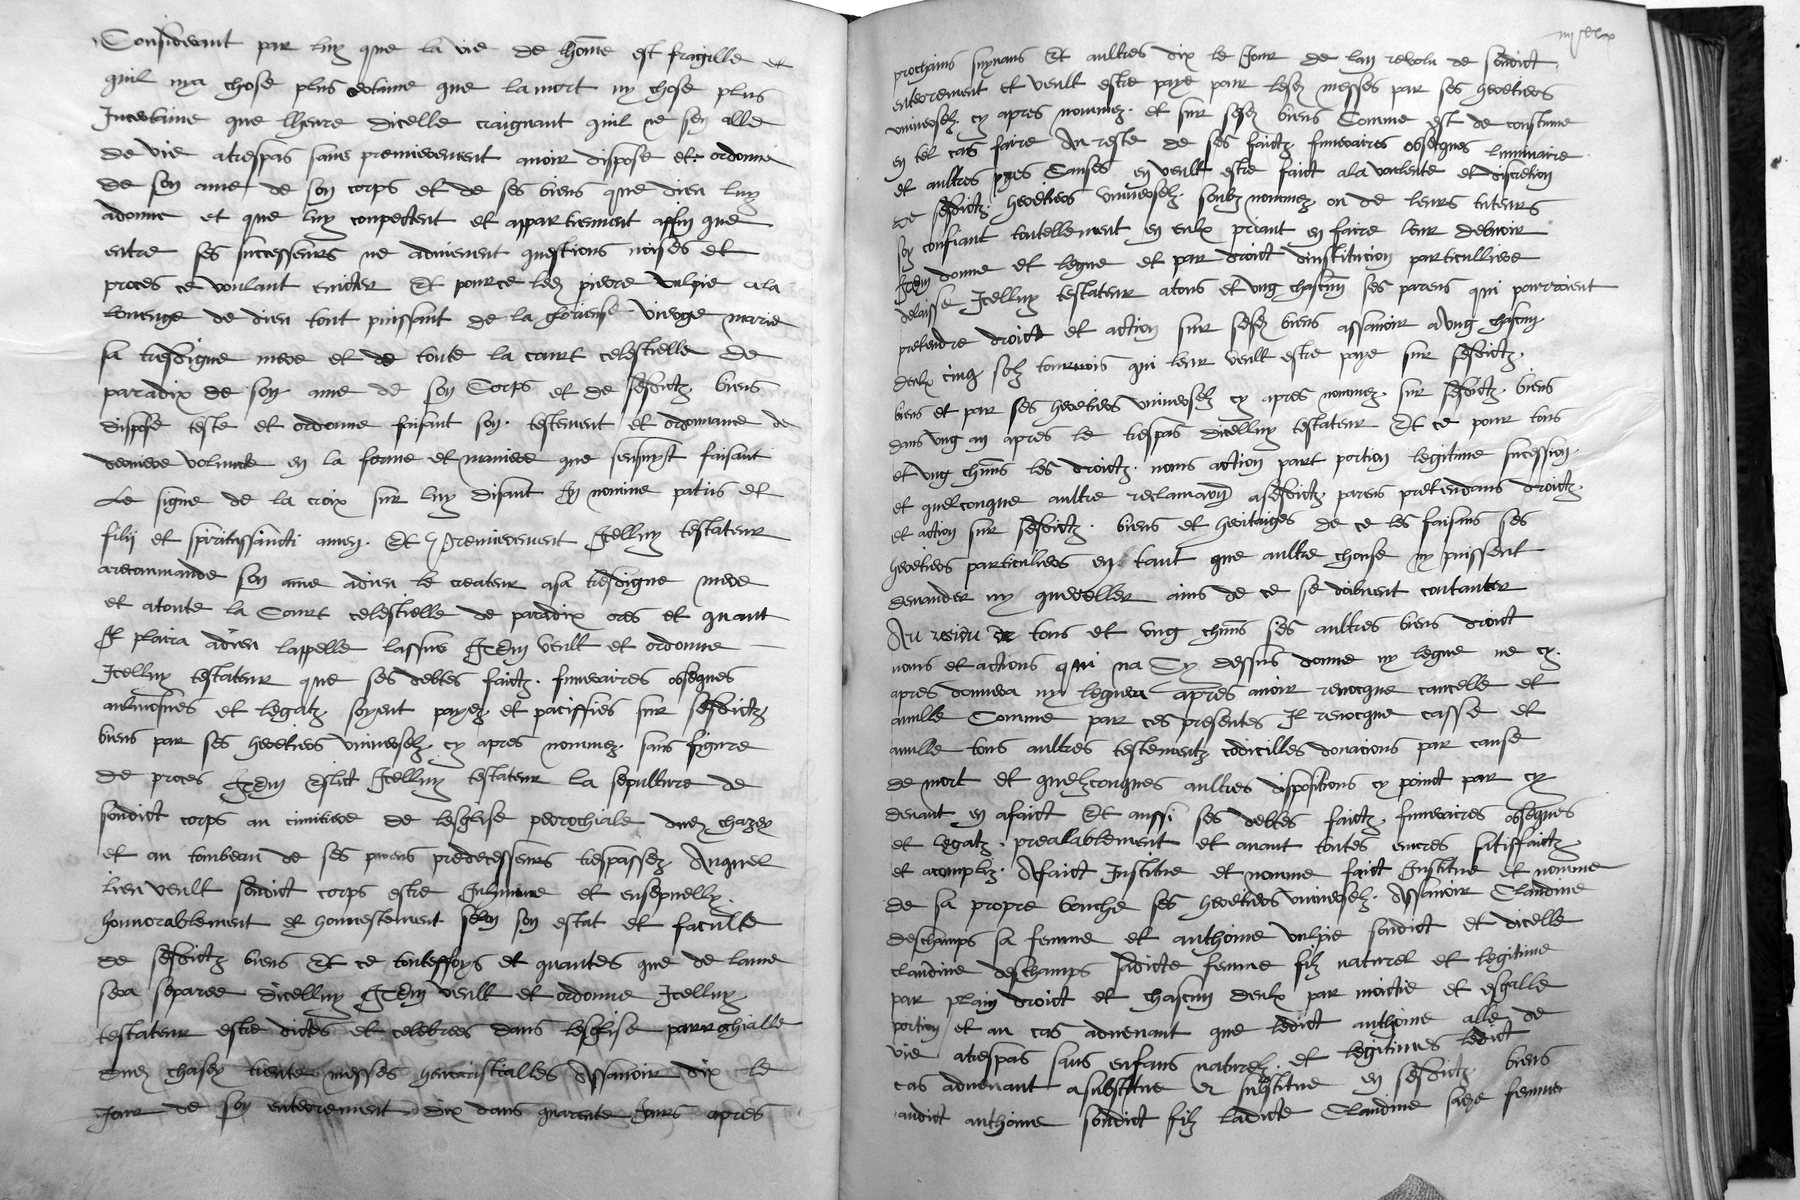 Considerant par luy que la vie de home est fragille et
quil nya chose plus certaine que la mort ny chose plus
Incertaine que lheure dicelle craignant quil ne sen alle
de vie atrespas sans premierement avoir dispose et ordonne
de son ame de son corps et de ses biens que dieu luy
adonne et que luy conpectent et appartiennent affin que
entre ses successeurs ne adviennent questions noises et
proces ce voulant eviter Et pource led pierre vulpie ala
louenge de dieu tout puissant de la glorieuse vierge marie
sa tresdigne mere et de toute la court celestielle de
paradix de son ame de son Corps et de sesdictz biens
dispose teste et ordonne faisant son testement et ordonnance de
derniere volunte en la forme et maniere que sensuyst faisant
Le signe de la croix sur luy disant In nomine patris et
filii et spiritussancti amen Et premierement Icelluy testateur
arecommande son ame adieu le createur asa tresdigne mere
et atoute la Court celestielle de paradix ores et quant
Il plaira adieu lappelle lassus Item veult et ordonne
Icelluy testateur que ses debtes faictz funeraires obseques
aulmosnes et legatz soyent payez et paciffies sur sesdictz
biens par ses heretiers universelz cy apres nommez sans figure
de proces Item Eslict Icelluy testateur la sepulture de
sondict corps au cimitiere de lesglise perrochiale duez chazey
et au tombeau de ses parens predecesseurs trespassez Auquel
lieu veult sondict corps estre Inhumme et ensepvelly
honnorablement et honnestement selon son estat et faculte
de sesdictz biens Et ce touteffoys et quantes que de lame
sera separee dicelluy Item veult et ordonne Icelluy
testateur estre dictes et celebrees dans lesglise parrochialle
duez chasey trente messes heucaristialles Assavoir dix le
Jour de son enterrement dix dans quarente Jours apres
prochains suyvans Et aultres dix le Jour de lan revolu de sondict
enterrement et veult estre paye pour lesd messes par ses heretiers
universelz cy apres nommez et sur sesd biens Comme est de coustume
en tel cas faire Au reste de ses faictz funeraires obseques luminaire
et aultres pies Causes en veult estre faict ala voulente et discretion
de sesdictz heretiers universelz soubz nommez ou de leurs tuteurs
soy confiant toutellement en eulx priant en faire leur debvoir
Item donne et legue et par droict dinstitucion particulliere
delaisse Icelluy testateur atous et ung chascun ses parens qui pourroient
pretendre droict et action sur sesd biens assavoir aung chascun
deulx cinq solz tournois qui leur veult estre paye sur sesdictz
biens et par ses heretiers universelz cy apres nommez sur sesdictz biens
dans ung an apres le trespas dicelluy testateur Et ce pour tous
et ung chuns les droictz noms action part portion legitime sucession
et quelconque aultre reclamaon asesdictz parens pretendans droictz
et action sur sesdictz biens et heritaiges de ce les faisans ses
heretiers particuliers en tant que aultre chouse ny puissent
demander ny quereller ains de ce se doibvent contanter
Au residu de tous et ung chuns ses aultres biens droict
noms et actions qui na Cy dessus donne ny legue ne cy
apres donnera ny leguera apres avoir revocque cancelle et
anulle Comme par ces presentes Il revocque casse et
anulle tous aultres testementz codicilles donacions par cause
de mort et quelzconques aultres dispositions cy poinct par cy
devant en afaict Et aussi ses debtes faictz funeraires obseques
et legatz prealablement et avant toutes euvres satisfaictz
et acompliz Afaict Institue et nomme faict Institue et nomme
de sa propre bouche ses heretiers universelz Assavoir Claudine
deschamps sa femme et anthoine vulpie sondict et dicelle
claudine deschamps sadicte femme filz naturel et legitime
par plain droict et chascun deulx par moictie et esgalle
portion et au cas advenant que ledict anthoine alle de
vie atrespas sans enfans naturelz et legitimes ledict
cas advenant asubstitue et substitue en sesdictz biens
audict anthoine sondict filz ladicte Claudine sadite femme